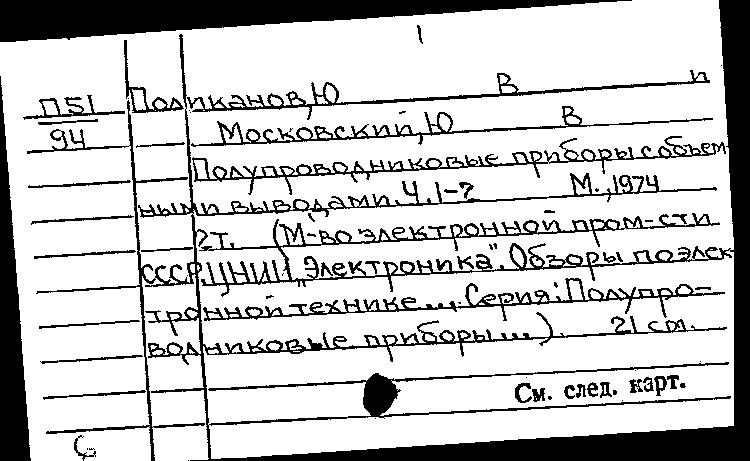 1
П51 Поликанов, Ю В и
94 Московский, Ю В
Полупроводниковые приборы с объем-
ными выводами. Ч. 1-?
М., 1974
2т. (М-во электронной пром-сти
СССР. ЦНИИ „Электроника". Обзоры по элек-
тронной технике... Серия: Полупро-
водниковые приборы...). 21 см.
См. след. карт.